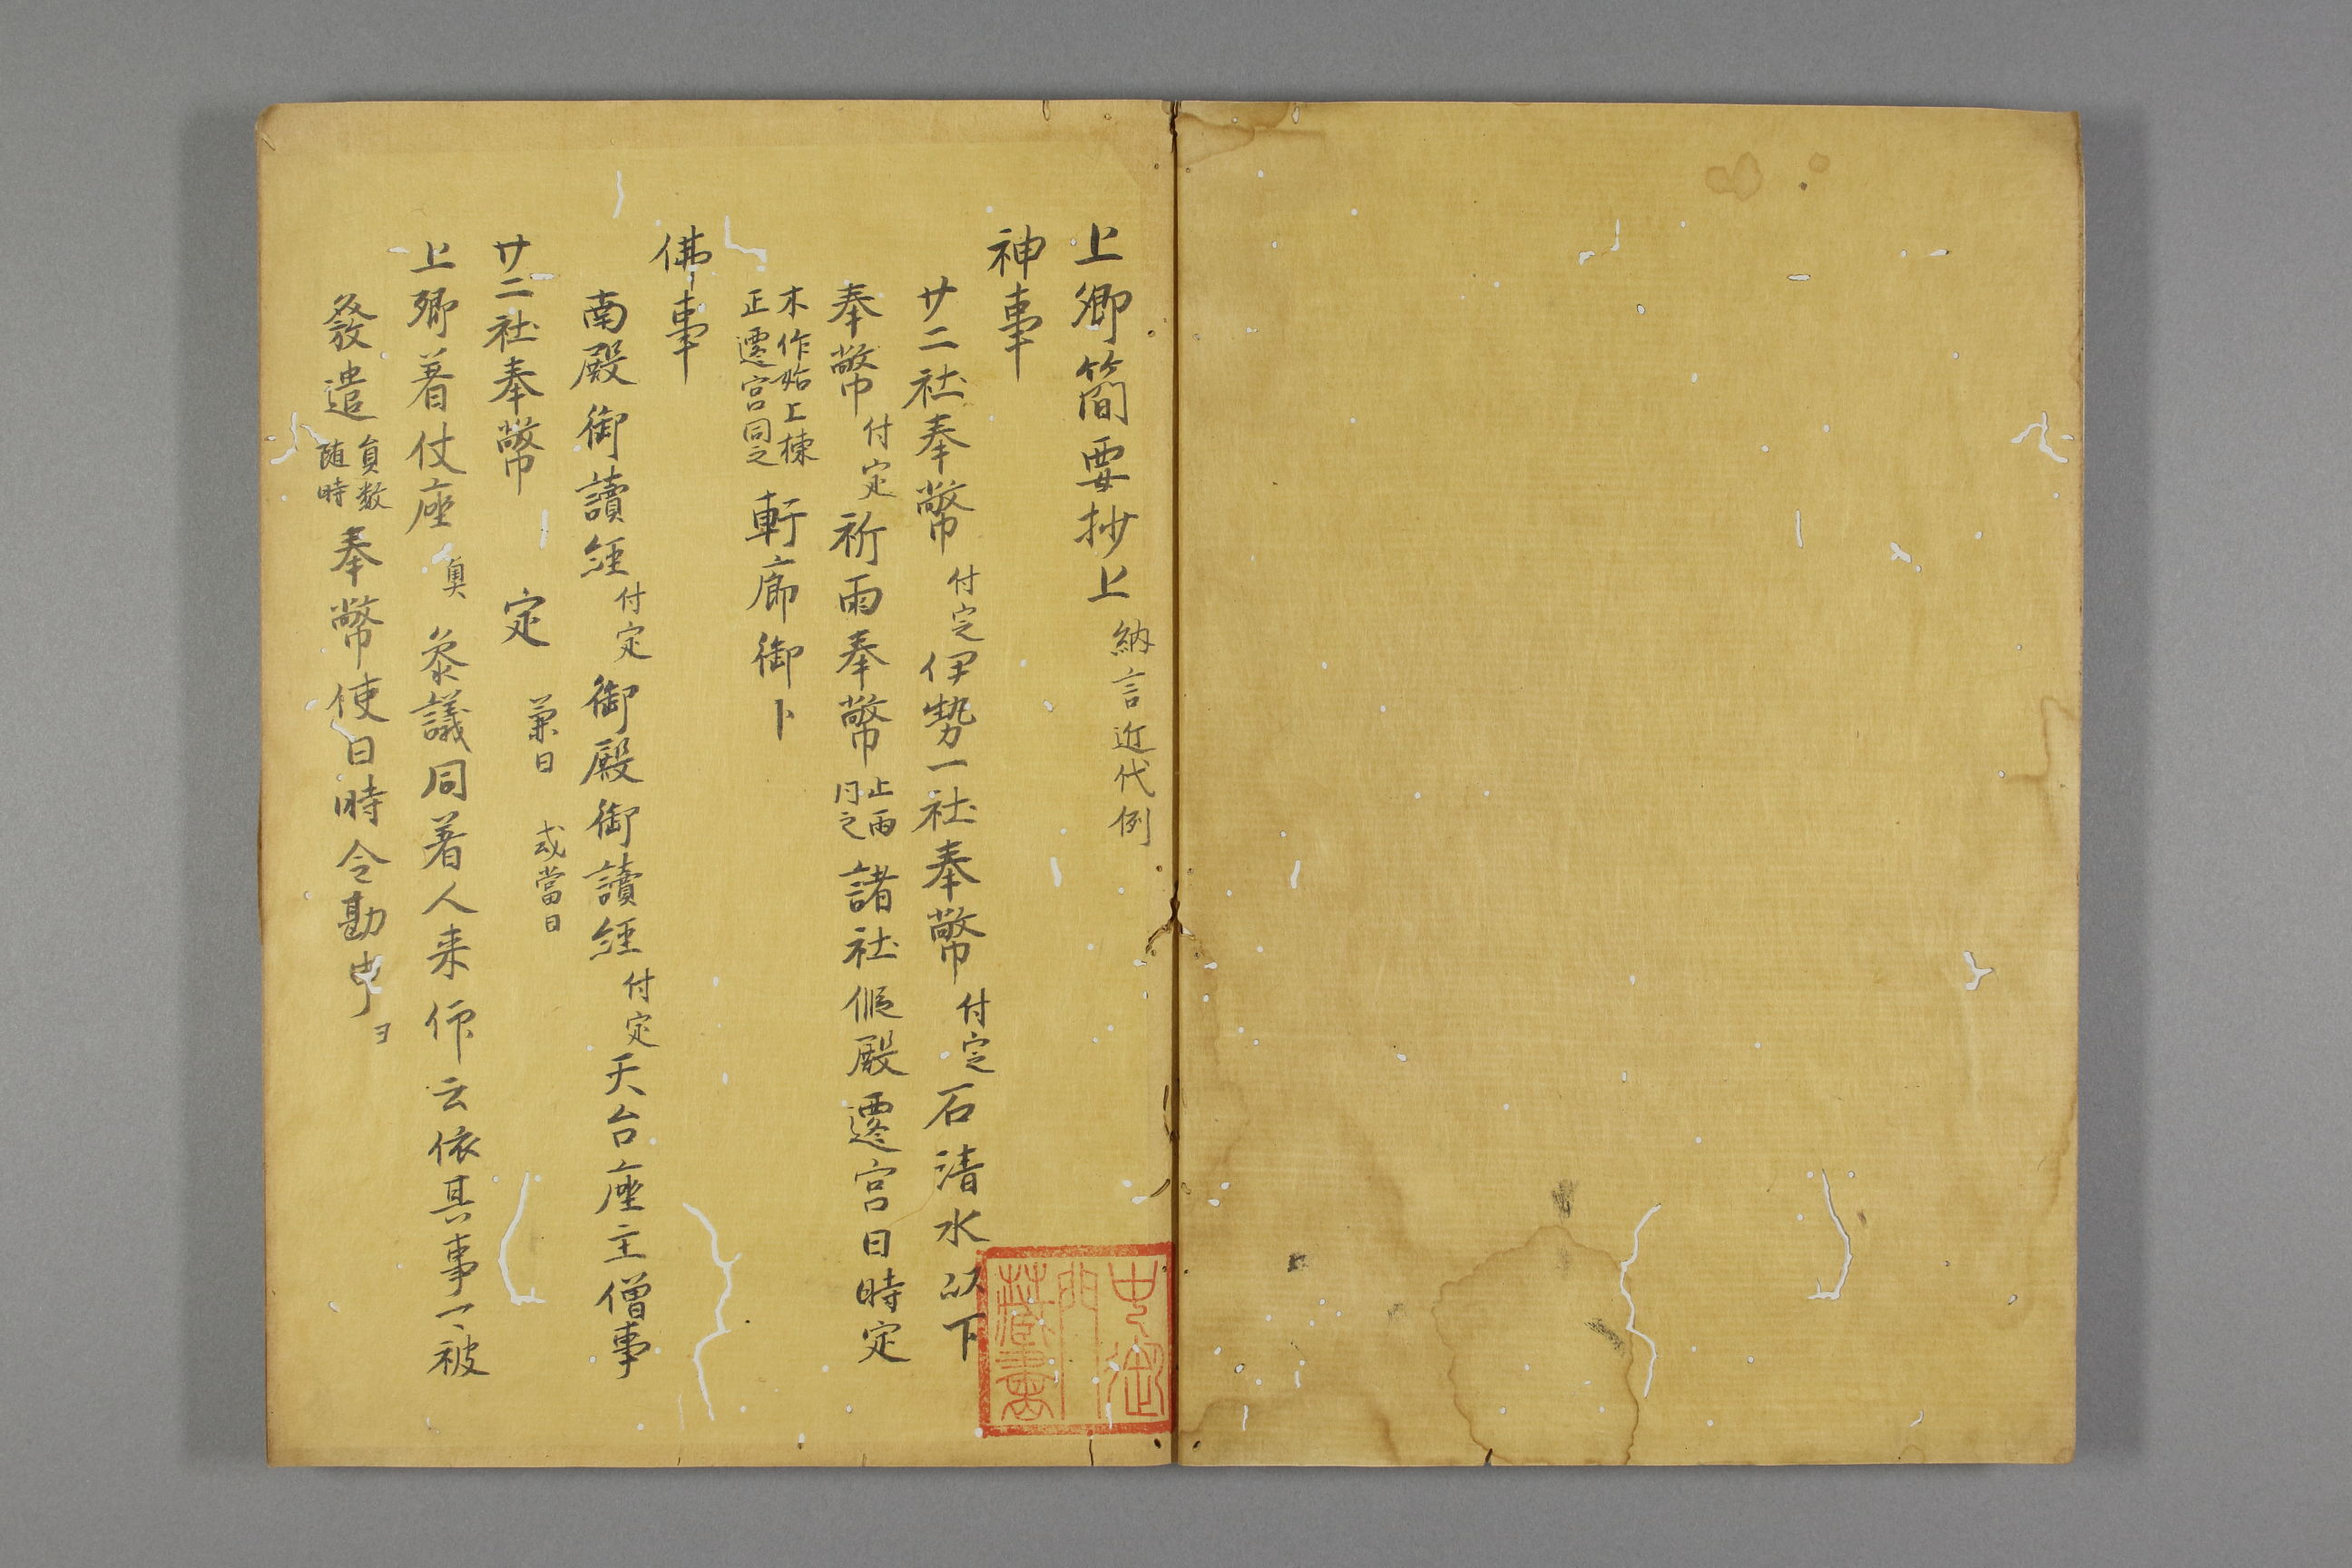 上卿簡要抄上 納言近代例
神事
廿二社奉幣 付定 伊勢一社奉幣 付定 石清水以下
奉幣 付定 祈雨奉幣 止雨同之 諸社假殿遷宮日時定
木作始上棟正遷宮同之 軒廊御卜
佛事
南殿御讀經 付定 御殿御讀經 付定 天台座主僧事
廿二社奉幣 定 兼日 或當日
上卿着仗座 奥 参議同着人来仰云依其事可被
發遣 員数随時 奉幣使日時令勘申ヨ
中御門藏書